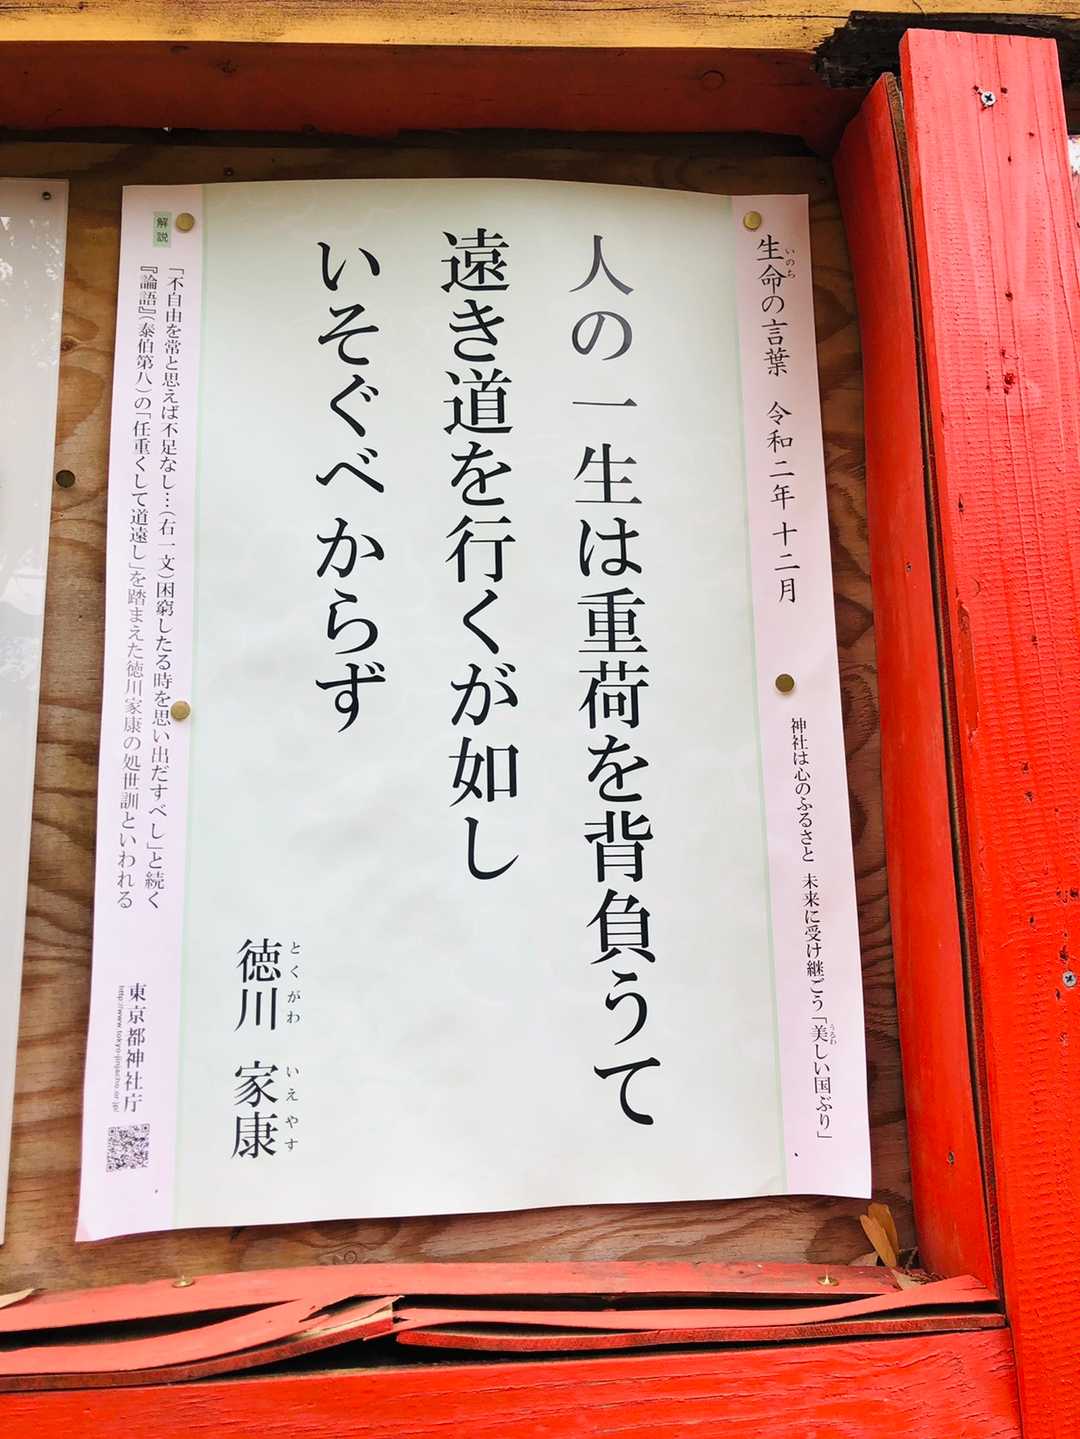 生命の言葉 令和二年 十二月
いのち
神社は心のふるさと 未来に受け継ごう「美しい国ぶり」
うるわ
人の一生は重荷を背負うて
遠き道を行くが如し
いそぐべからず
徳川 家康
とくがわ いえやす
解説
「不自由を常と思えば不足なし…(右一文)困窮したる時を思い出だすべし」と続く
『論語』(泰伯第八)の「任重くして道遠し」を踏まえた徳川家康の処世訓といわれる
東京都神社庁
http://www.tokyo-jinjacho.or.jp/